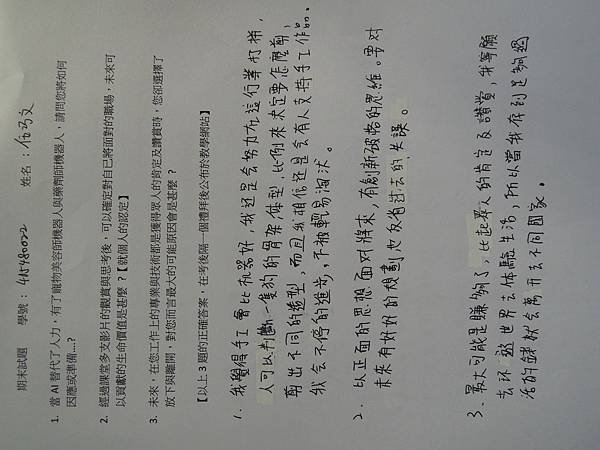 期末試題 學號：415480022 姓名：伍巧文
1. 當 AI 替代了人力，有了寵物美容師機器人與藥劑師機器人，請問您將如何
因應或準備...?
2. 經過課堂多支影片的觀賞與思考後，可以確定對自已將面對的職場，未來可
以貢獻的生命價值是甚麼？【就個人的認定】
3. 未來，在您工作上的專業與技術都是獲得眾人的肯定及讚賞時，您卻選擇了
放下與離開，對您而言最大的可能原因會是甚麼？
【以上 3 題的正確答案，在考後隔一個禮拜後公布於教學網站】
1. 我覺得手工會比机器好，我还是会努力在這行業打拚，
人可以判斷一隻狗的骨架/体型、比例來決定要怎麼剪，
剪出不同的造型，而且我相信还是会有人支持手工作品、
我会不停的進步，不被輕易淘汰。
2. 以正面的思想面对將來，有創新破舊的思維。要对
未來有好好的規劃也反省过去的失誤。
3. 最大可能是賺夠了，比起眾人的肯定及讚賞，我寧願
去环遊世界去体驗生活，所以當我存到足夠的
活的錢就会离开去不同國家。